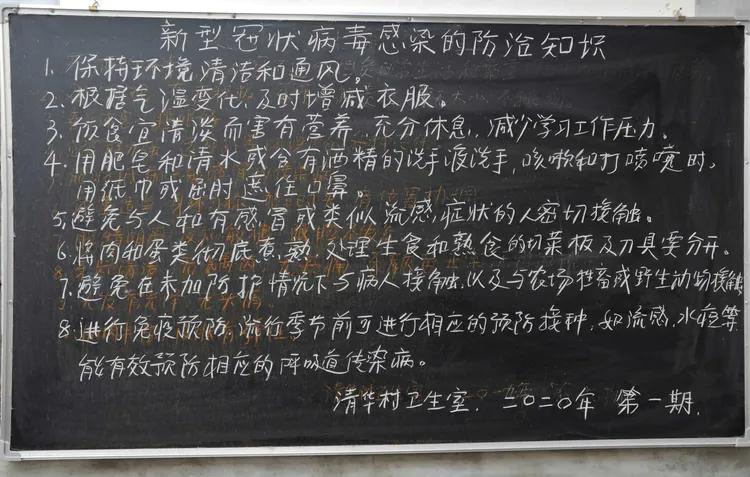 新型冠状病毒感染的防治知识
1. 保持环境清洁和通风。
2. 根据气温变化,及时增减衣服。
3. 饮食宜清淡而富有营养,充分休息,减少学习工作压力。
4. 用肥皂和清水或含有酒精的洗手液洗手,咳嗽和打喷嚏时,
用纸巾或屈肘遮住口鼻。
5. 避免与人和有感冒或类似流感症状的人密切接触。
6. 将肉和蛋类彻底煮熟,处理生食和熟食的切菜板及刀具要分开。
7. 避免在未加防护情况下与病人接触,以及与农场牲畜或野生动物接触
8. 进行免疫预防,流行季节前可进行相应的预防接种,如流感,水痘等
能有效预防相应的呼吸道传染病。
清华村卫生室. 二〇二〇年 第一期.